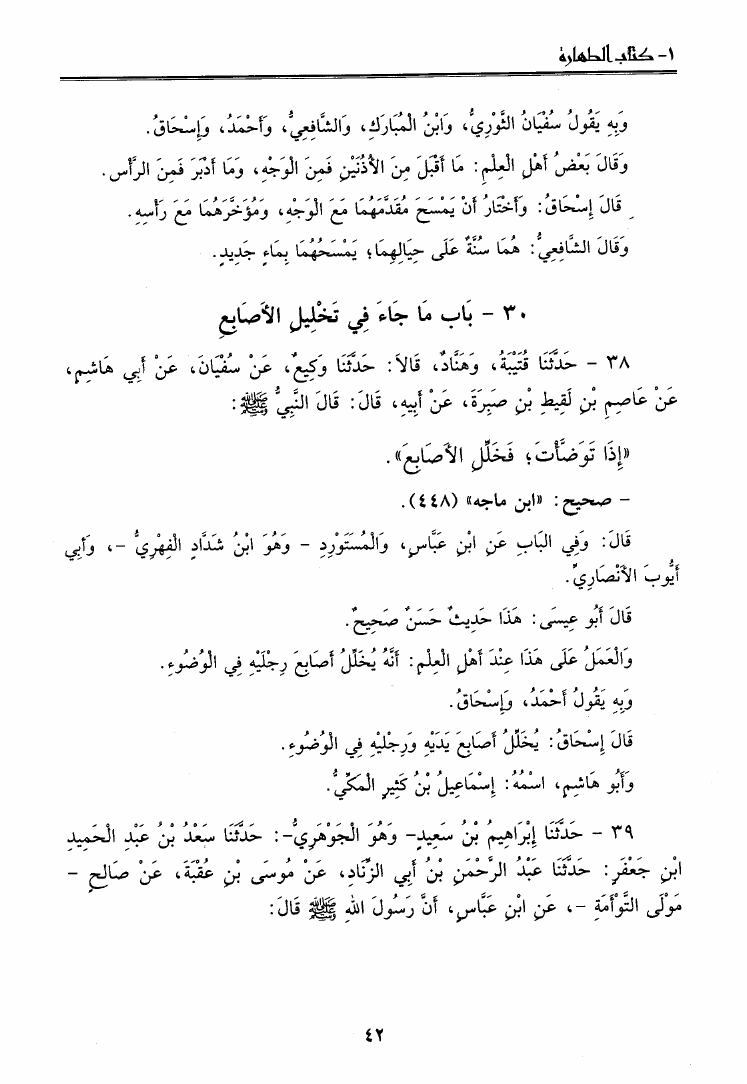 ١- كتاب الطهارة
وَبِهِ يَقُولُ سُفْيَانُ الثَّوْرِيُّ، وَابْنُ الْمُبَارَكِ، وَالشَّافِعِيُّ، وَأَحْمَدُ، وَإِسْحَاقُ.
وَقَالَ بَعْضُ أَهْلِ الْعِلْمِ: مَا أَقْبَلَ مِنَ الأُذُنَيْنِ فَمِنَ الْوَجْهِ، وَمَا أَدْبَرَ فَمِنَ الرَّأْسِ.
قَالَ إِسْحَاقُ: وَأَخْتَارُ أَنْ يَمْسَحَ مُقَدَّمَهُمَا مَعَ الْوَجْهِ، وَمُؤَخَّرَهُمَا مَعَ رَأْسِهِ.
وَقَالَ الشَّافِعِيُّ: هُمَا سُنَّةٌ عَلَى حِيَالِهِمَا؛ يَمْسَحُهُمَا بِمَاءٍ جَدِيدٍ.
٣٠ - بَاب مَا جَاءَ فِي تَخْلِيلِ الأَصَابِعِ
٣٨ - حَدَّثَنَا قُتَيْبَةُ، وَهَنَّادٌ، قَالاَ: حَدَّثَنَا وَكِيعٌ، عَنْ سُفْيَانَ، عَنْ أَبِي هَاشِمٍ،
عَنْ عَاصِمِ بْنِ لَقِيطِ بْنِ صَبِرَةَ، عَنْ أَبِيهِ، قَالَ: قَالَ النَّبِيُّ ﷺ:
«إِذَا تَوَضَّأْتَ؛ فَخَلِّلِ الأَصَابِعَ».
- صحيح: «ابن ماجه» (٤٤٨).
قَالَ: وَفِي الْبَابِ عَنِ ابْنِ عَبَّاسٍ، وَالْمُسْتَوْرِدِ - وَهُوَ ابْنُ شَدَّادٍ الْفِهْرِيُّ -، وَأَبِي
أَيُّوبَ الأَنْصَارِيِّ.
قَالَ أَبُو عِيسَى: هَذَا حَدِيثٌ حَسَنٌ صَحِيحٌ.
وَالْعَمَلُ عَلَى هَذَا عِنْدَ أَهْلِ الْعِلْمِ: أَنَّهُ يُخَلِّلُ أَصَابِعَ رِجْلَيْهِ فِي الْوُضُوءِ.
وَبِهِ يَقُولُ أَحْمَدُ، وَإِسْحَاقُ.
قَالَ إِسْحَاقُ: يُخَلِّلُ أَصَابِعَ يَدَيْهِ وَرِجْلَيْهِ فِي الْوُضُوءِ.
وَأَبُو هَاشِمٍ، اسْمُهُ: إِسْمَاعِيلُ بْنُ كَثِيرٍ الْمَكِّيُّ.
٣٩ - حَدَّثَنَا إِبْرَاهِيمُ بْنُ سَعِيدٍ- وَهُوَ الْجَوْهَرِيُّ-: حَدَّثَنَا سَعْدُ بْنُ عَبْدِ الْحَمِيدِ
ابْنِ جَعْفَرٍ: حَدَّثَنَا عَبْدُ الرَّحْمَنِ بْنُ أَبِي الزِّنَادِ، عَنْ مُوسَى بْنِ عُقْبَةَ، عَنْ صَالِحٍ -
مَوْلَى التَّوْأَمَةِ -، عَنِ ابْنِ عَبَّاسٍ، أَنَّ رَسُولَ اللهِ ﷺ قَالَ:
٤٢